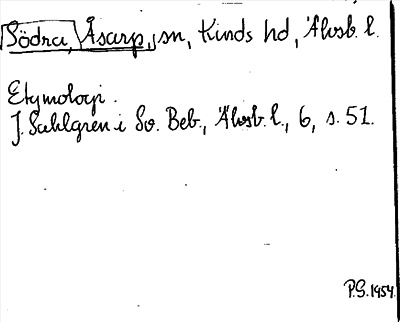 Södra Åsarp, sn, Kinds hd, Älvsb. l.
Etymologi.
J. Sahlgren i Sv. Beb., Älvsb. l., 6, s. 51.
P.G. 1954.